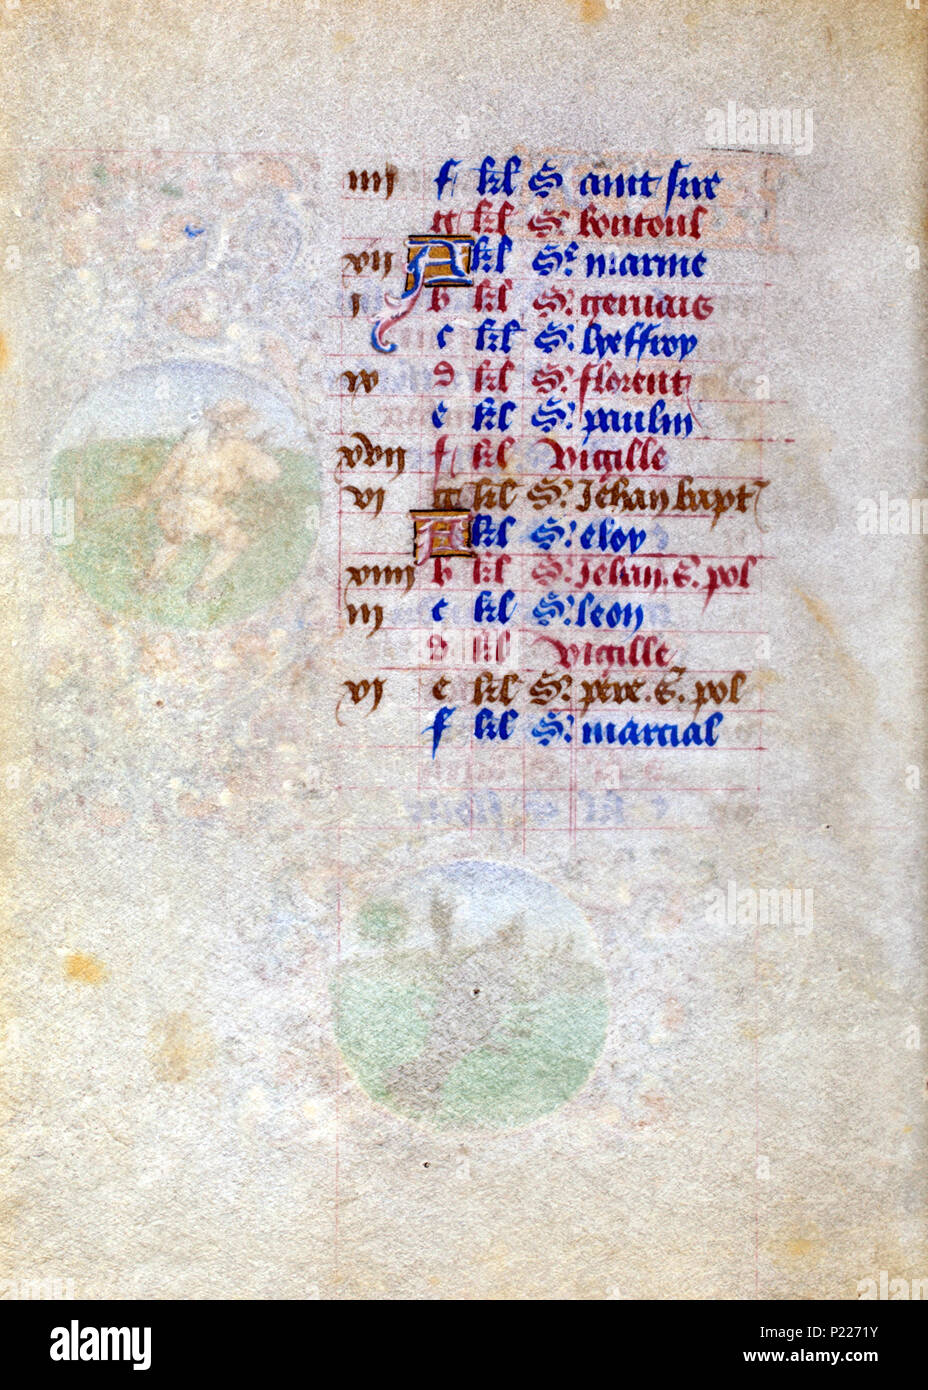 iiij f kl S aiiit sire
g kl S. bontoul
xij A kl S. marine
i b kl S. geruais
c kl S. lyeffroy
ix d kl S. florent
e kl S. paulin
xvij f kl Vigille
vi g kl S. Jehan bapt
A kl S. eloy
xiiij b kl S. Jehan. S. pol
iij c kl S. leon
d kl Vigille
xi e kl S. pere. S. pol
f kl S. marcial
alamy
alamy
alamy
alamy
alamy
Image ID: P2271Y
www.alamy.com